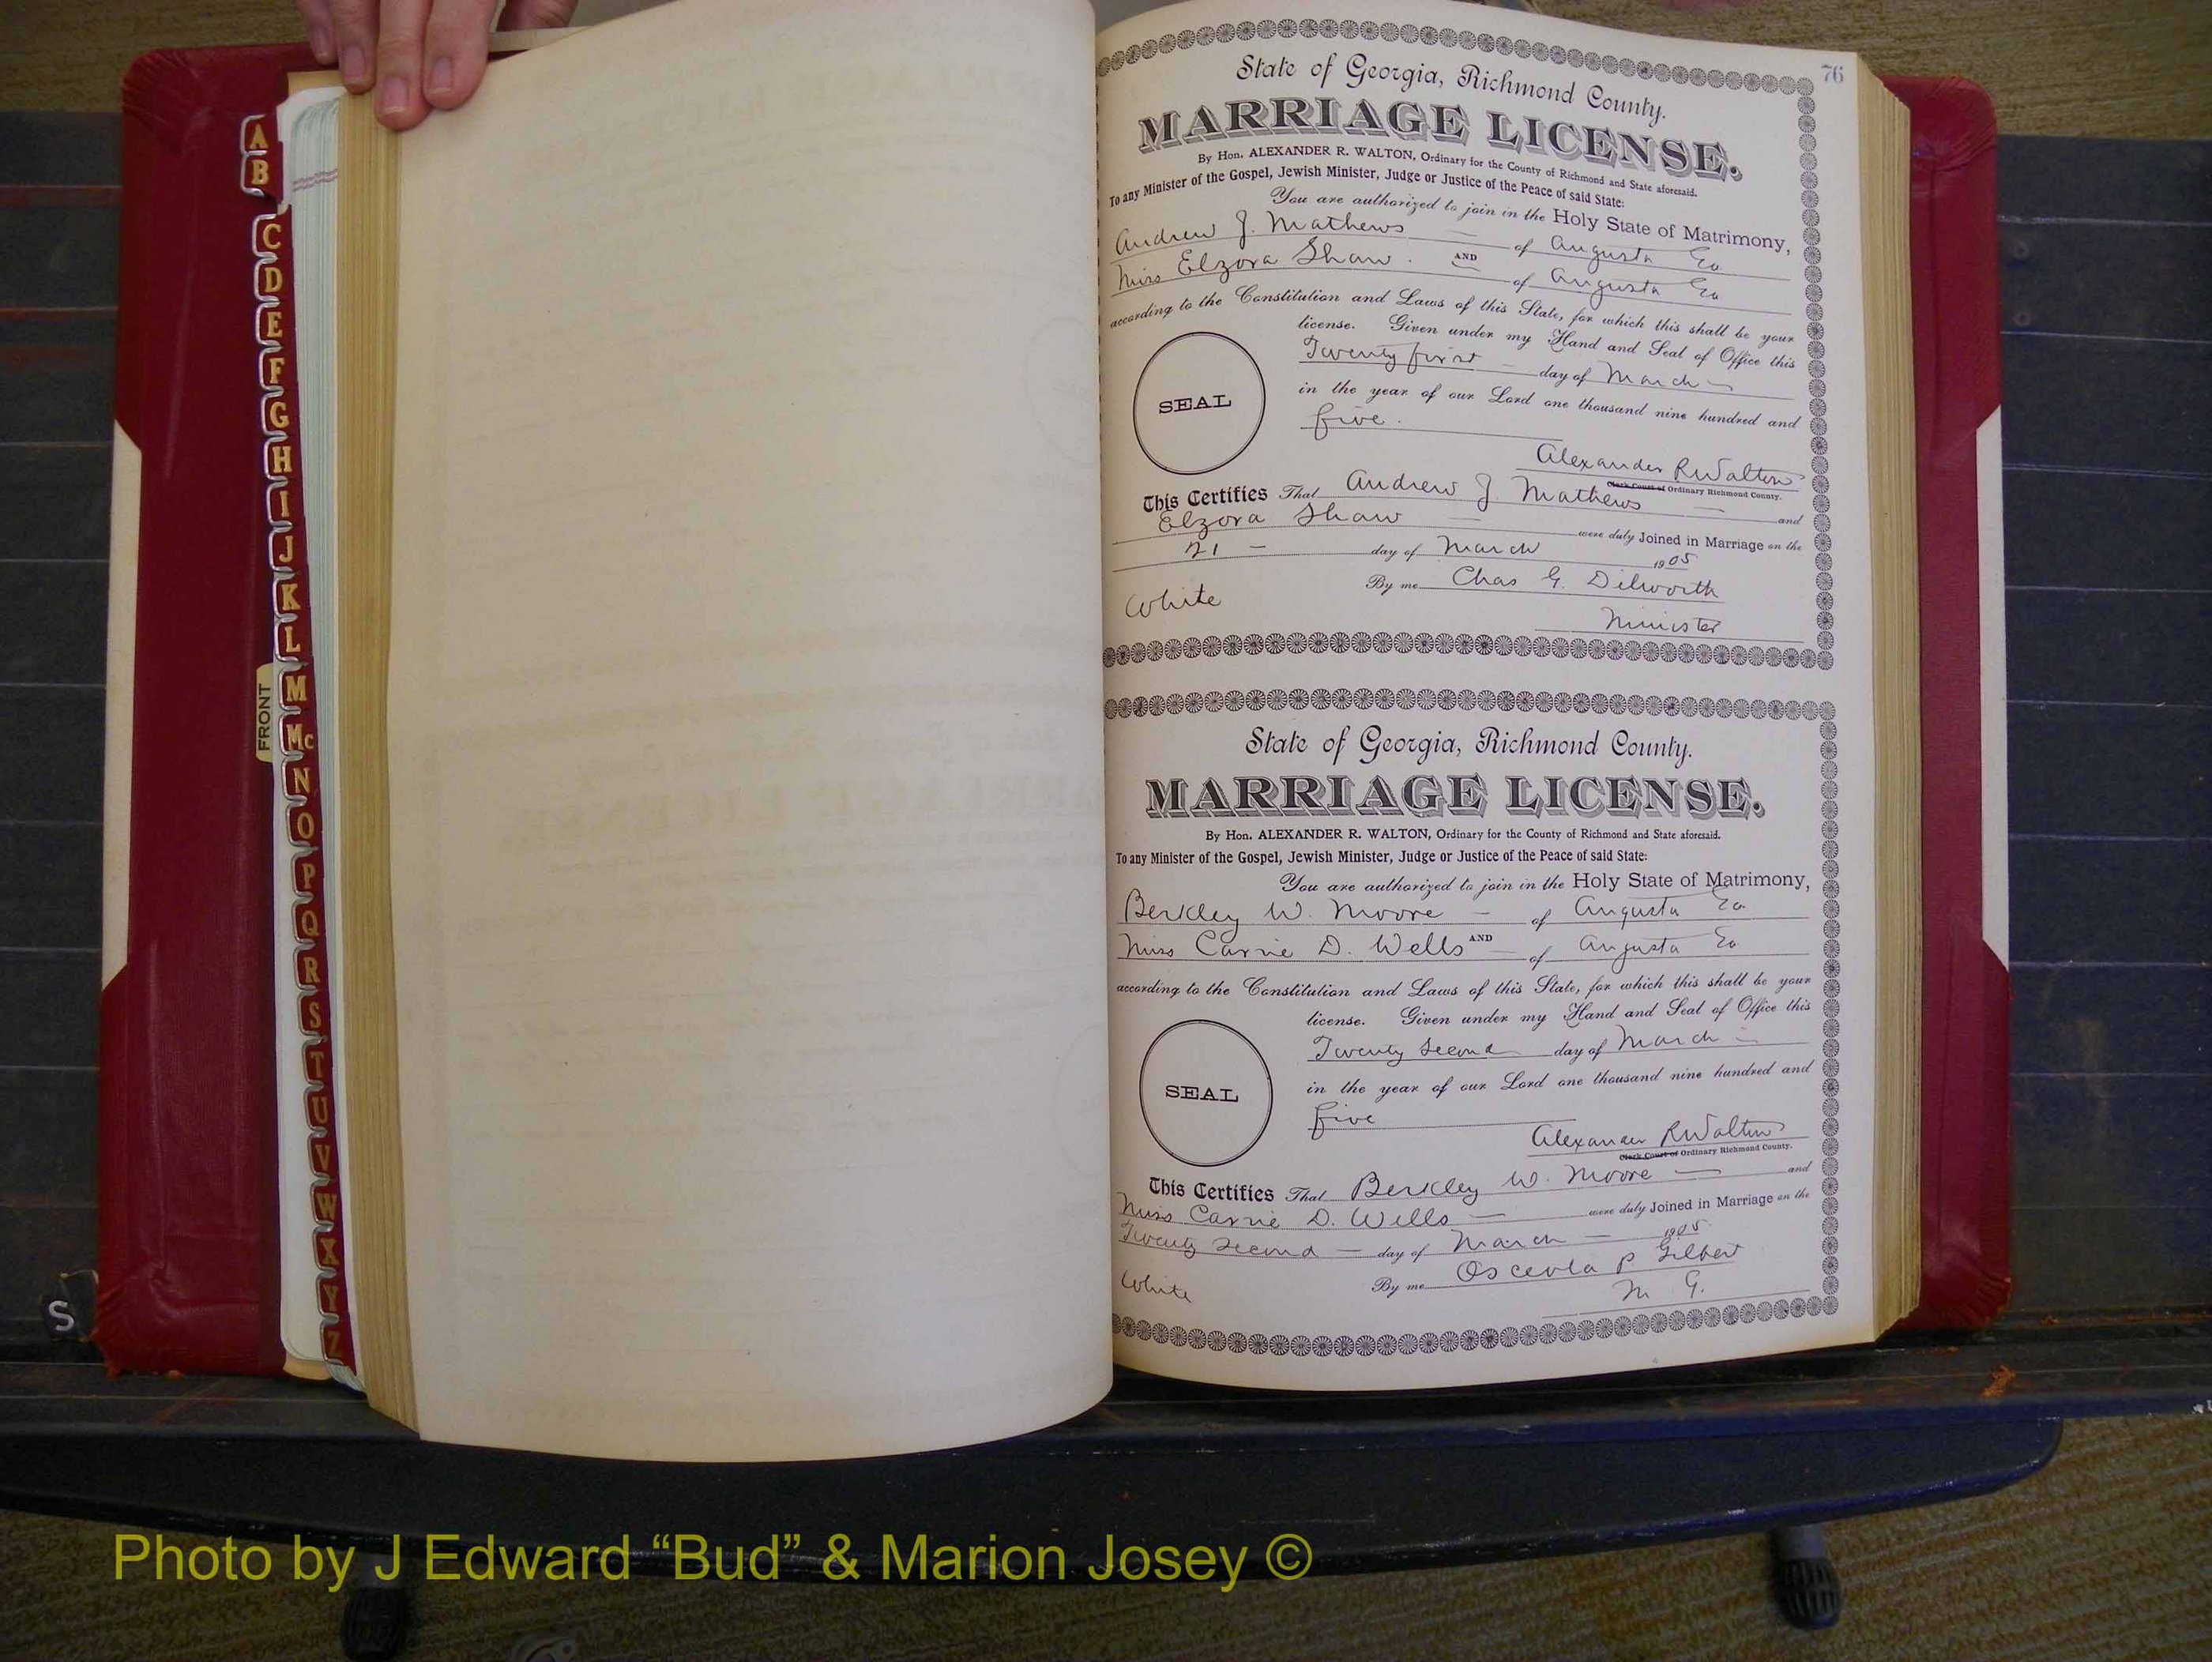 A
B
C
D
E
F
G
H
I
J
K
L
M
Mc
N
O
P
Q
R
S
T
U
V
W
X
Y
Z
FRONT
S
76
State of Georgia, Richmond County.
MARRIAGE LICENSE.
By Hon. ALEXANDER R. WALTON, Ordinary for the County of Richmond and State aforesaid.
To any Minister of the Gospel, Jewish Minister, Judge or Justice of the Peace of said State:
You are authorized to join in the Holy State of Matrimony,
Andrew J. Mathews of Augusta Ga
AND
Miss Elzora Shaw. of Augusta Ga
according to the Constitution and Laws of this State, for which this shall be your
license. Given under my Hand and Seal of Office this
Twenty first day of March
in the year of our Lord one thousand nine hundred and
five.
SEAL
Alexander R Walton
Clerk Court of Ordinary Richmond County.
This Certifies That Andrew J. Mathews and
Elzora Shaw were duly Joined in Marriage on the
21 day of March 1905
By me Chas G. Dilworth
White
Minister
State of Georgia, Richmond County.
MARRIAGE LICENSE.
By Hon. ALEXANDER R. WALTON, Ordinary for the County of Richmond and State aforesaid.
To any Minister of the Gospel, Jewish Minister, Judge or Justice of the Peace of said State:
You are authorized to join in the Holy State of Matrimony,
Berkley W. Moore of Augusta Ga
AND
Miss Carrie D. Wells of Augusta Ga
according to the Constitution and Laws of this State, for which this shall be your
license. Given under my Hand and Seal of Office this
Twenty Second day of March
in the year of our Lord one thousand nine hundred and
five
SEAL
Alexander R Walton
Clerk Court of Ordinary Richmond County.
This Certifies That Berkley W. Moore and
Miss Carrie D. Wells were duly Joined in Marriage on the
Twenty Second day of March 1905
By me Osceola P Gilbert
White
M. G.
Photo by J Edward “Bud” & Marion Josey ©